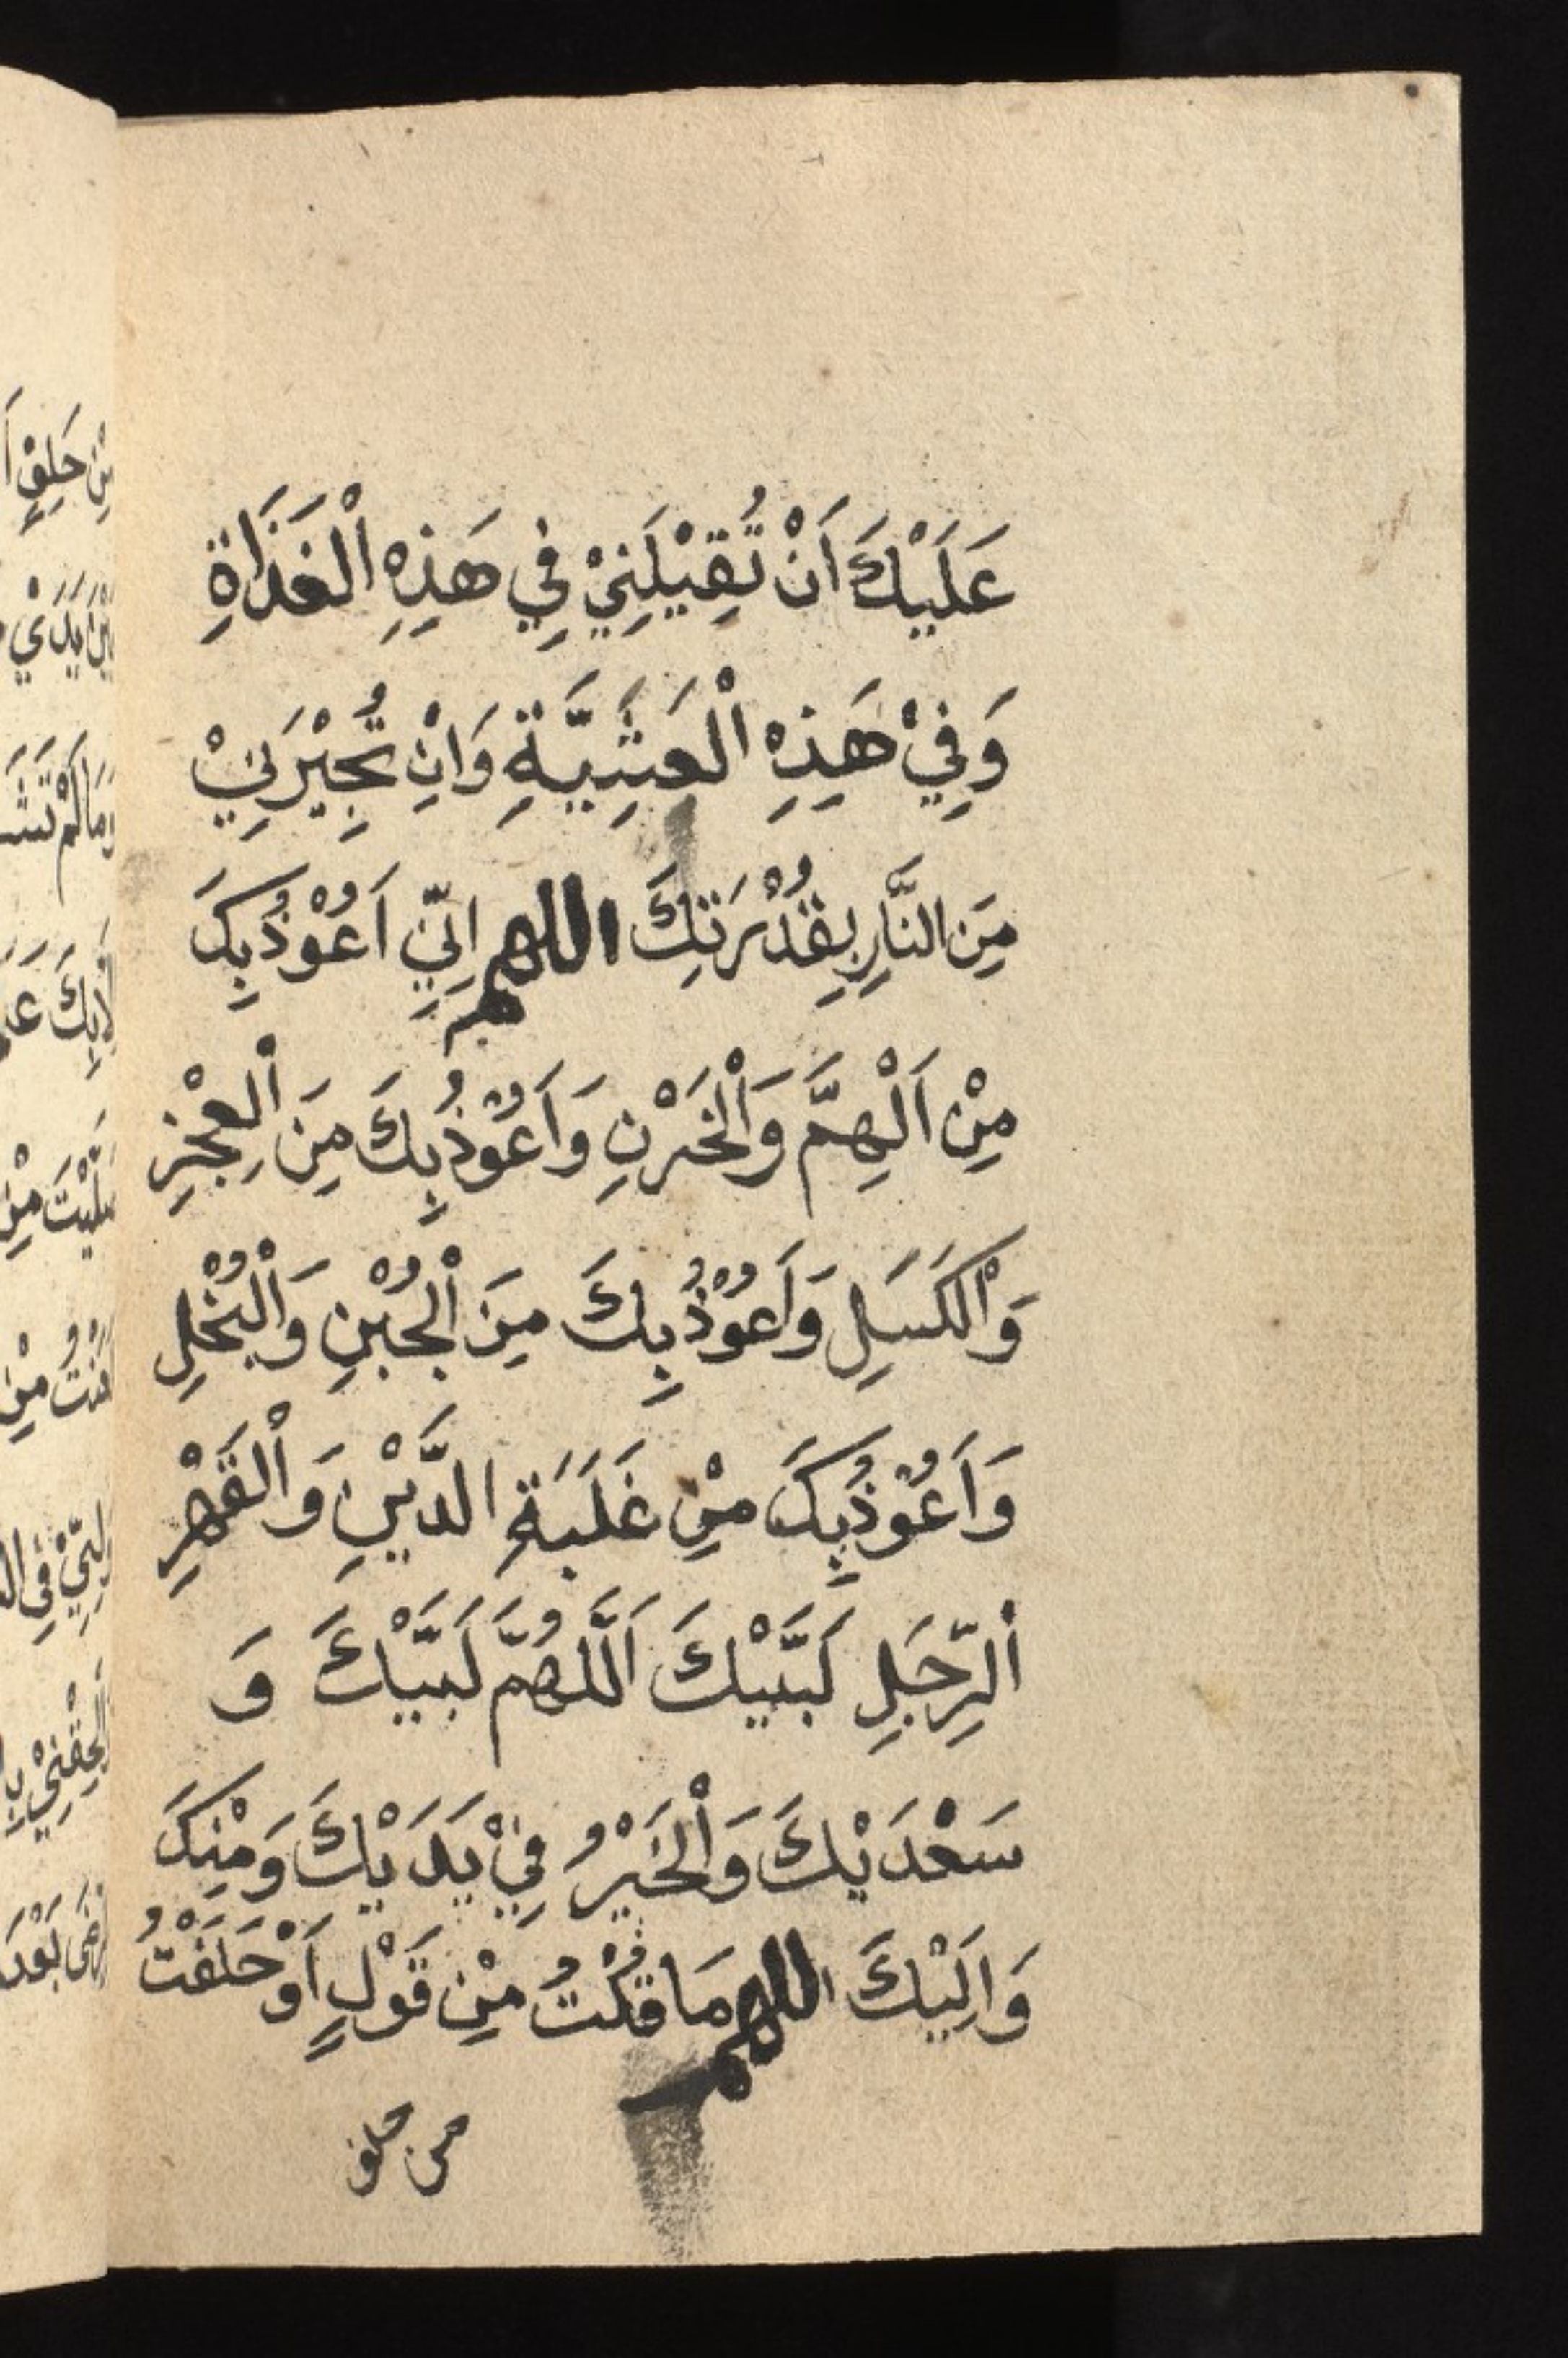 عَلَيْكَ اَنْ تُقِيْلَنِيْ فِي هَذِهِ اْلغَذَاةِ
وَفِيْ هَذِهِ اْلعَشِيَّةِ وَانْ تُجِيْرَنِيْ
مِنَ النَّارِ بِقُدْرَتِكَ اللهم اِنِّي اَعُوْذُبِكَ
مِنْ اَلْهِمَّ وَاْلخَرْنِ وَاَعُوْذُ بِكَ مِنَ اْلعِجْزِ
وَاْلكَسَلِ وَاَعُوْذُ بِكَ مِنَ اْلجُبْنِ وَاْلبُخْلِ
وَاَعُوْذُبِكَ مِنْ غَلَبَةِ الدَّيْنِ وَاْلقَهْرِ
اْلرِّجَلِ لَبَّيْكَ اَللَّهُمَّ لَبَّيْكَ وَ
سَعْدَيْكَ وَاْلخَيْرُ فِيْ يَدَيْكَ وَمِنْكَ
وَاِلَيْكَ اللهم مَا قُلْتُ مِنْ قَوْلٍ اَوْحَلَفْتُ
من حلف